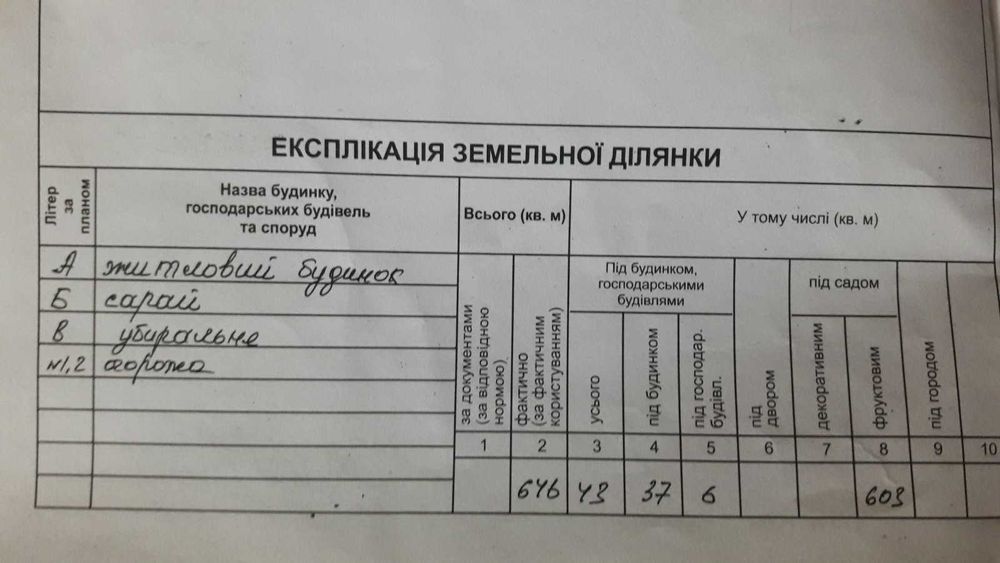 ЕКСПЛІКАЦІЯ ЗЕМЕЛЬНОЇ ДІЛЯНКИ
Літер за планом
Назва будинку, господарських будівель та споруд
Всього (кв. м)
У тому числі (кв. м)
А житловий будинок
Б сарай
В убиральне
№1,2 огорожа
за документами (за відповідною нормою)
фактично (за фактичним користуванням)
Під будинком, господарськими будівлями
усього
під будинком
під господар. будівл.
під двором
під садом
декоративним
фруктовим
під городом
1 2 3 4 5 6 7 8 9 10
646 43 37 6 603